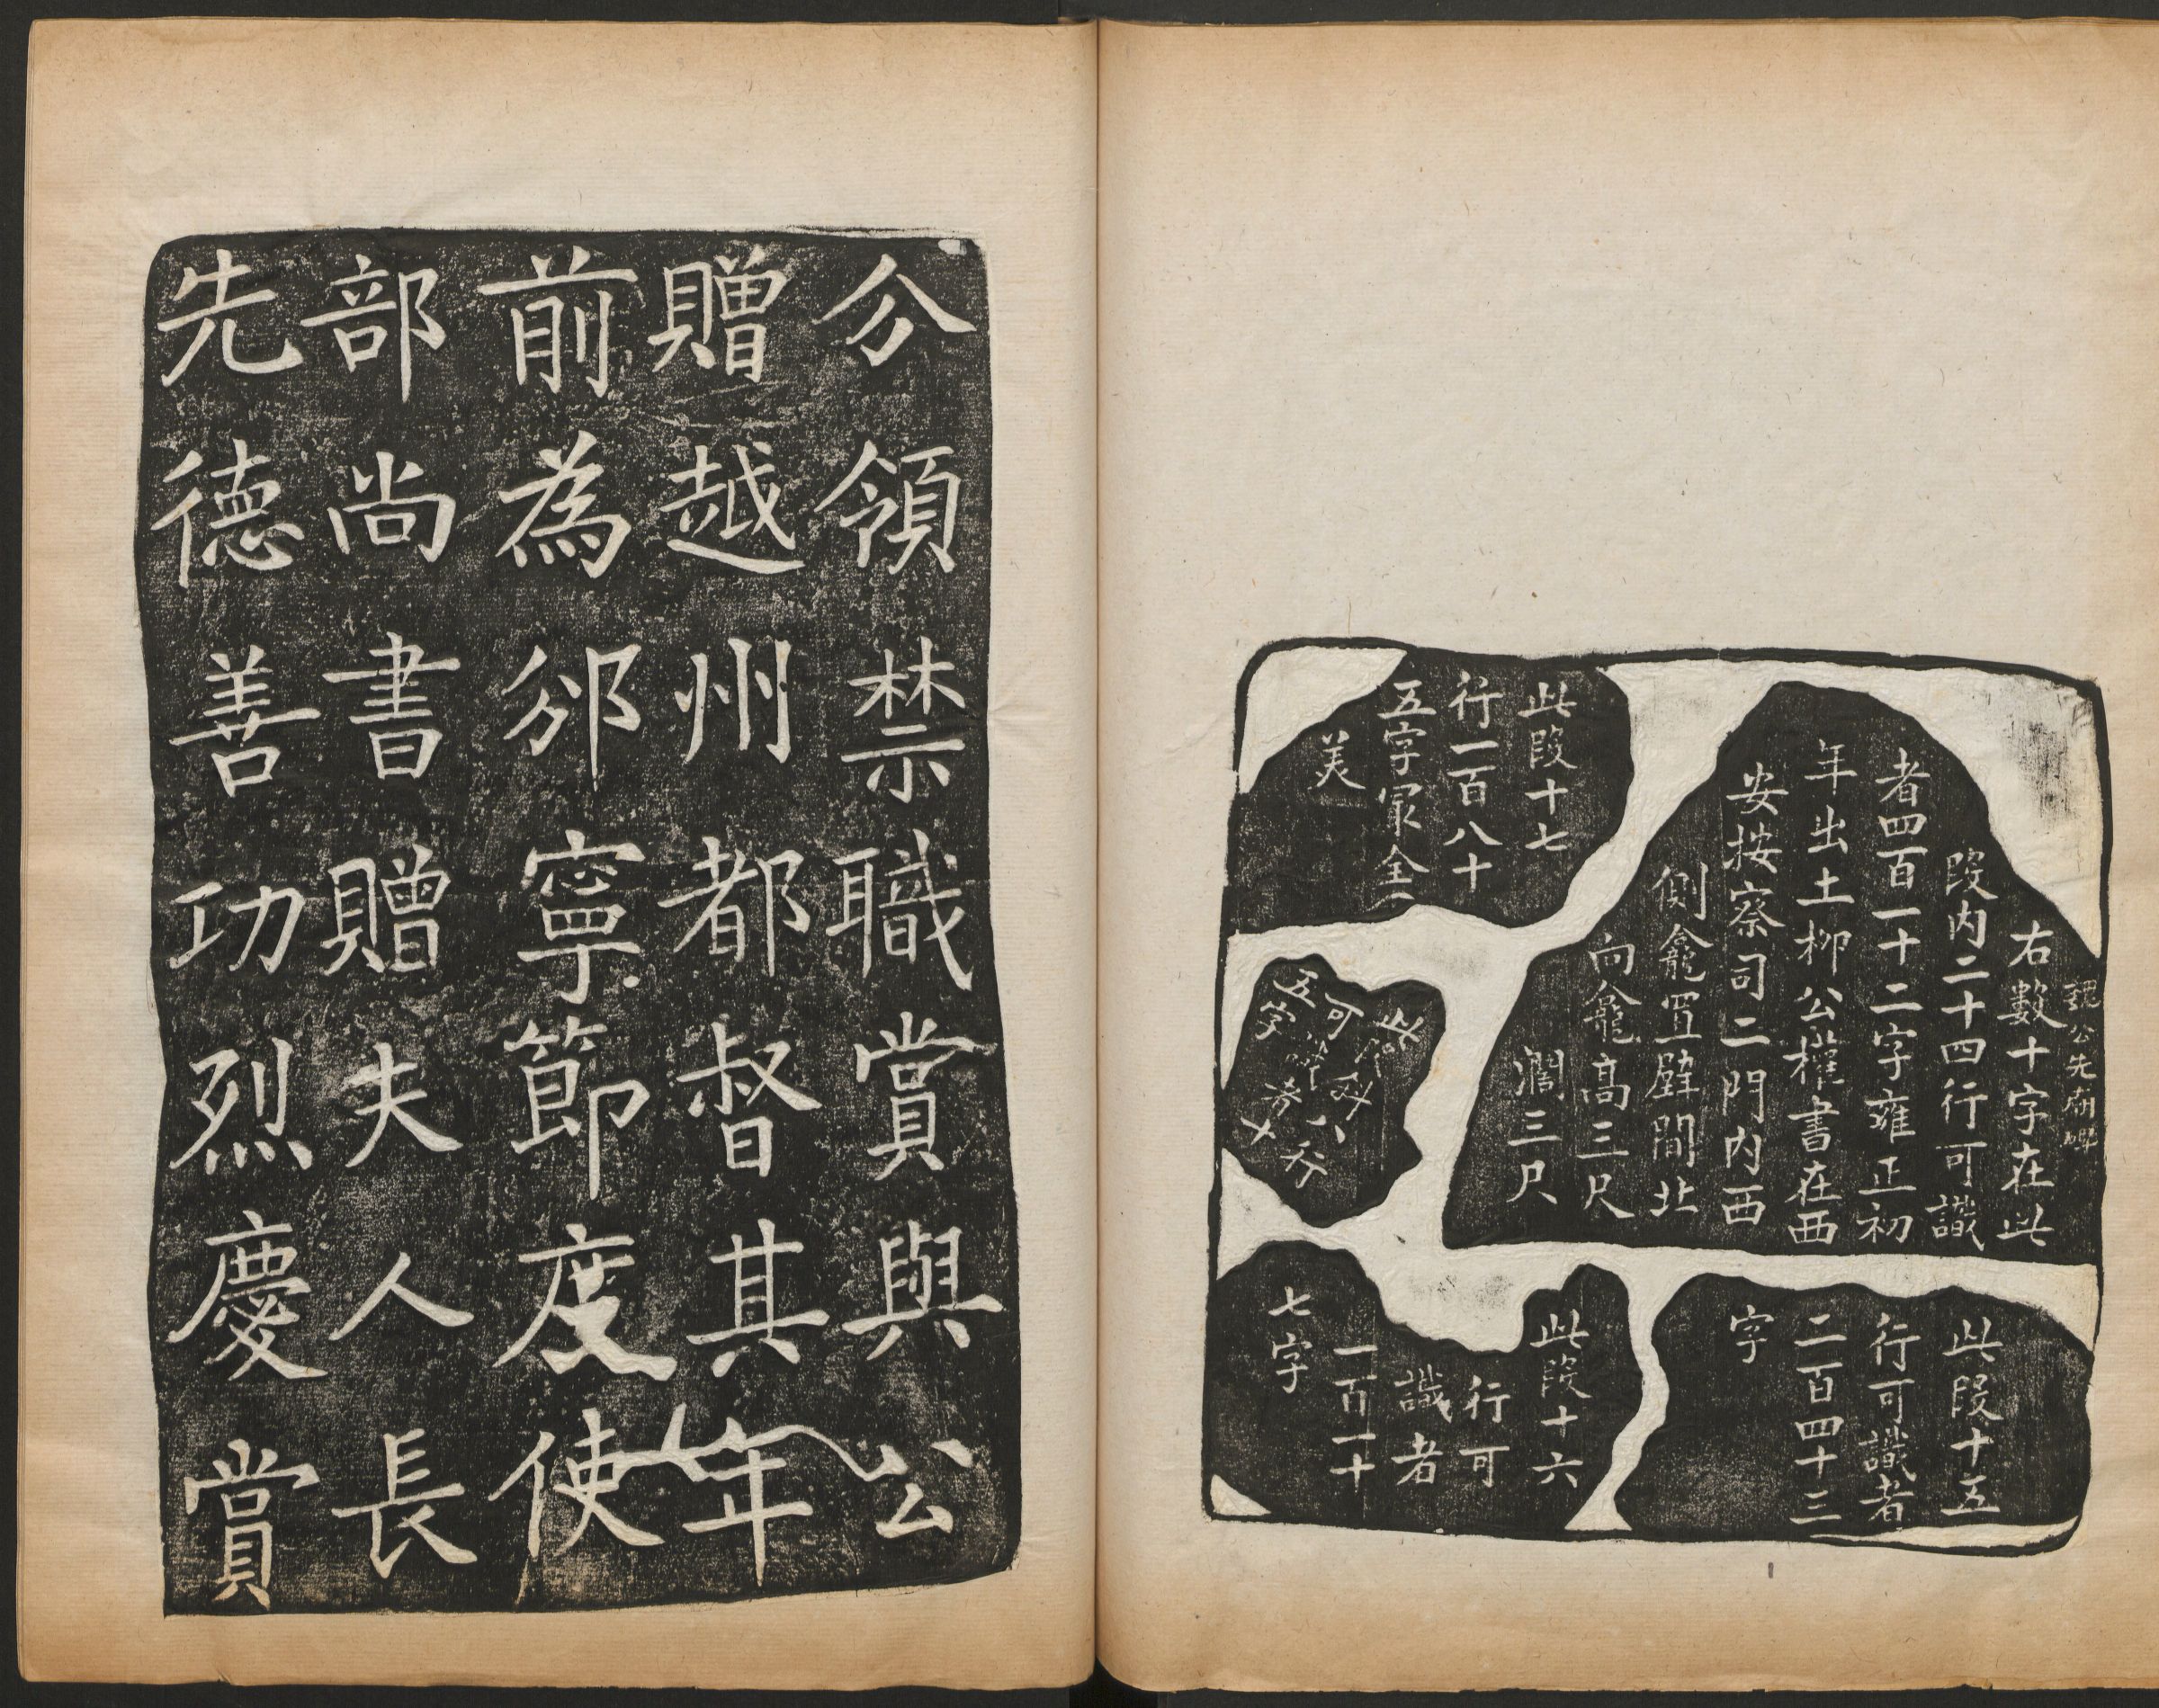 魏公先廟碑
右數十字在此
段内二十四行可識
者四百一十二字雍正初
年出土柳公權書在西
安按察司二門内西
側龕置壁間北
向龕高三尺
濶三尺
此段十七
行一百八十
五字冣全
美
此段十五
行可識者
二百四十三
字
此段十六
行可
識者
一百二十
七字
分領禁職賞與公
贈越州都督其年
前為邠寧節度使
部尚書贈夫人長
先德善功烈慶賞